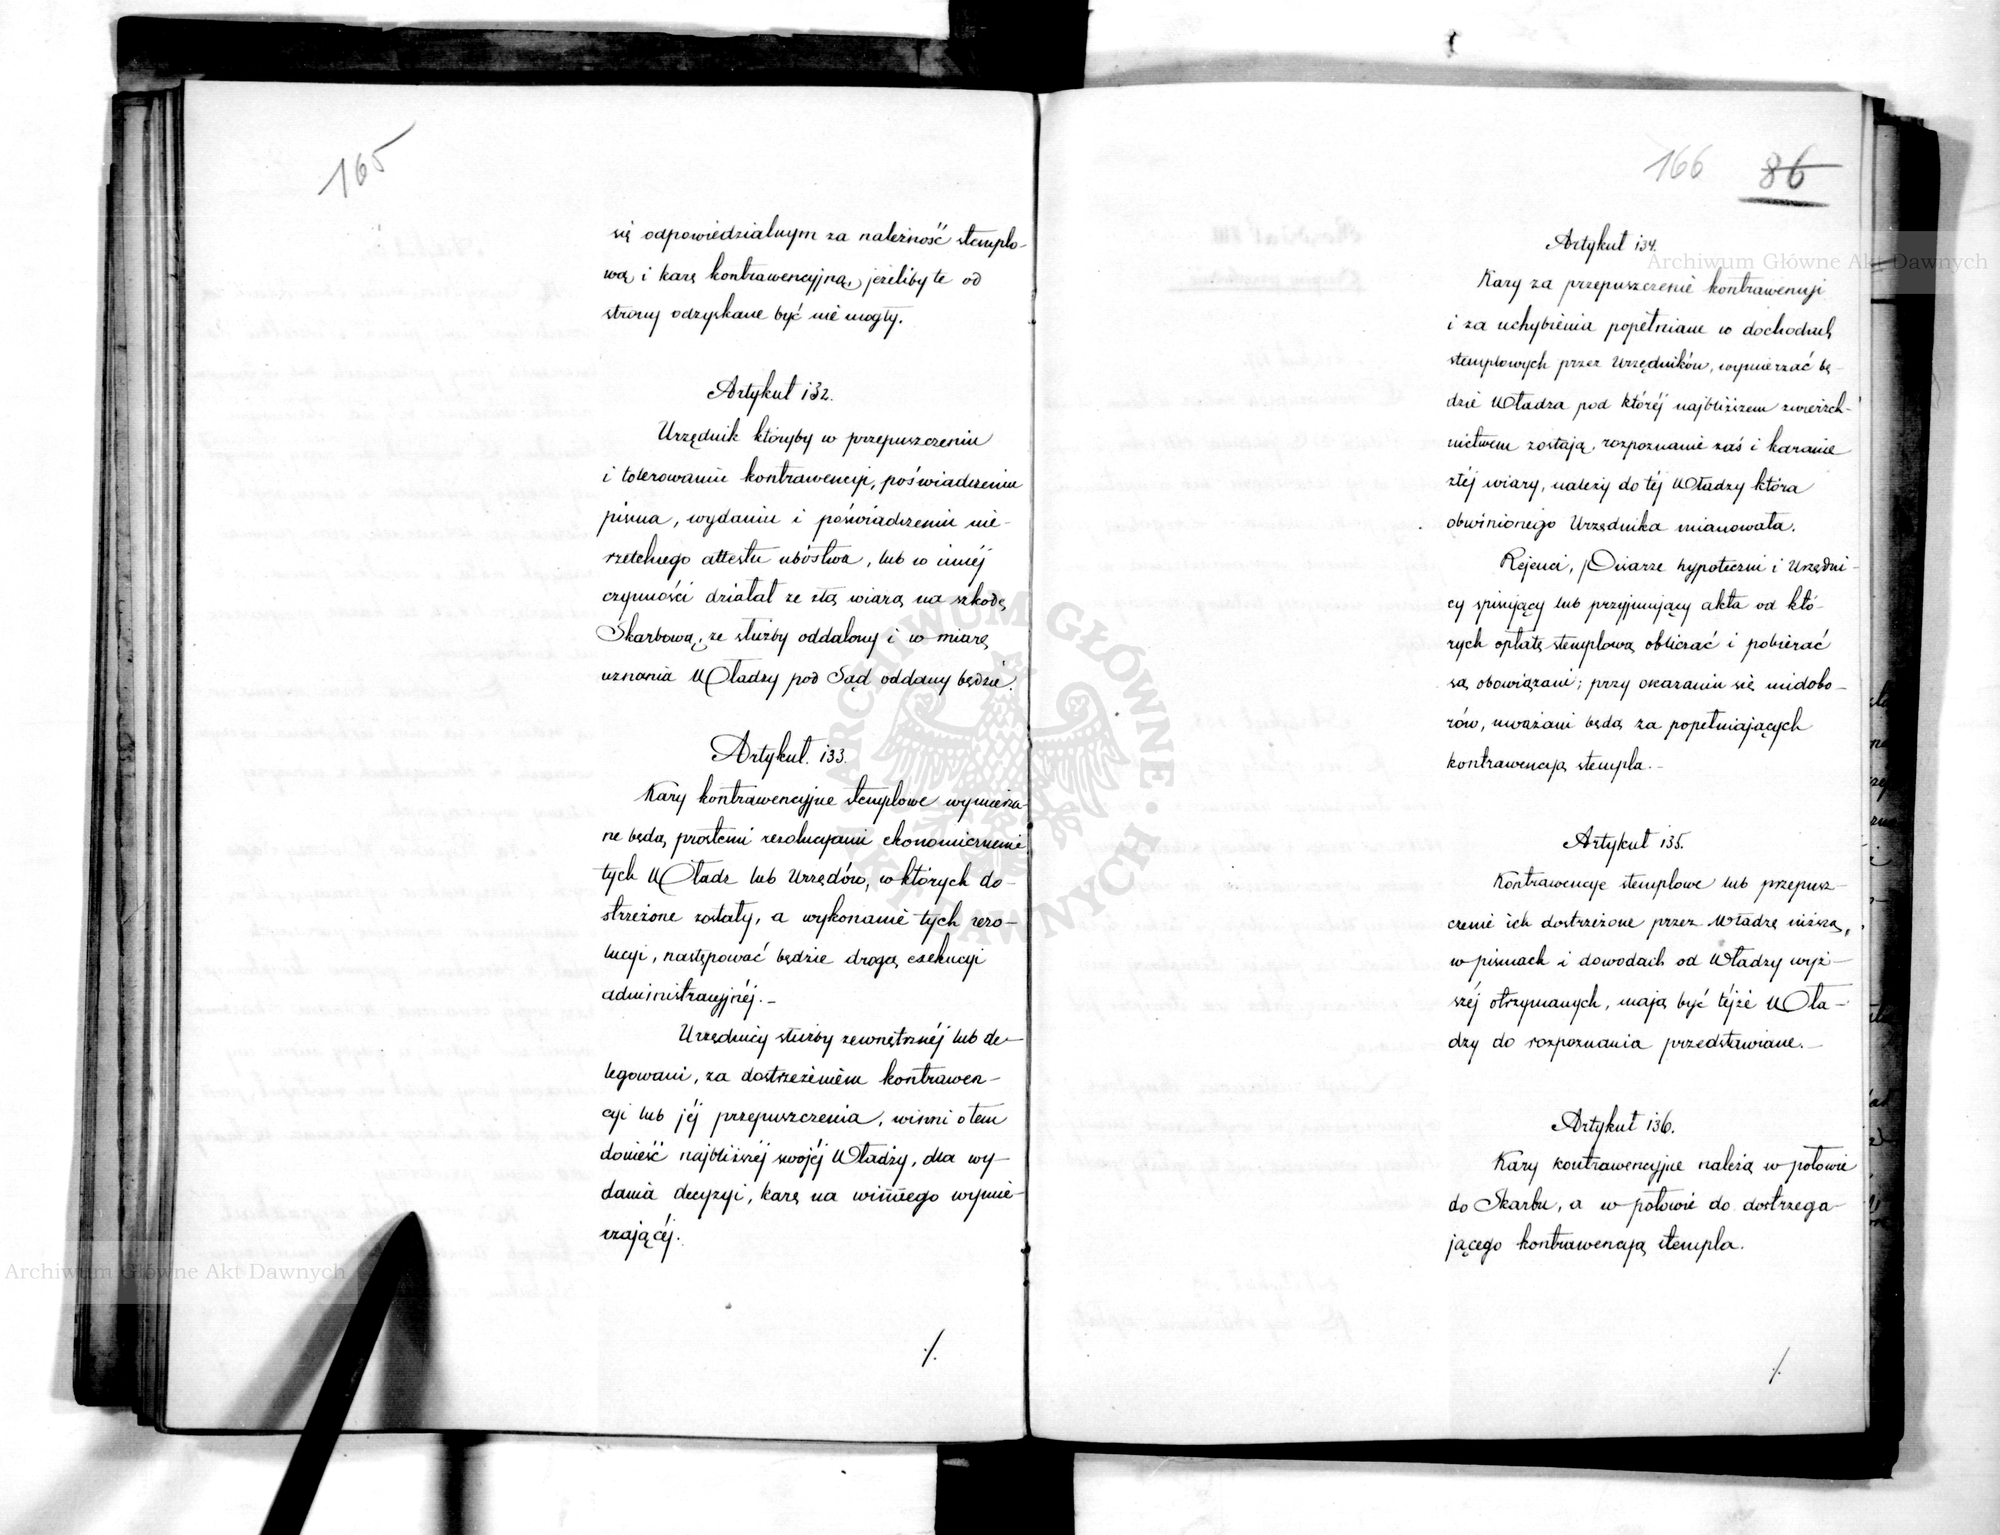 165
się odpowiedzialnym za należność stemplo-
wą i karę kontrawencyjną, jeżeliby te od
strony odzyskane być nie mogły.
Artykuł 132.
Urzędnik któryby w przepuszczeniu
i tolerowaniu kontrawencyi, poświadczeniu
pisma, wydaniu i poświadczeniu nie-
rzetelnego attestu ubóstwa, lub w innéj
czynności działał ze złą wiarą na szkodę
Skarbową, ze służby oddalony i w miarę
uznania Władzy pod Sąd oddany będzie.
Artykuł. 133.
Kary kontrawencyjne stemplowe wymierza-
ne będą prostemi rezolucyami ekonomicznemi
tych Władz lub Urzędów, w których do-
strzeżone zostały, a wykonanie tych rezo-
lucyi, następować będzie drogą exekucyi
administracyjnéj.-
Urzędnicy służby zewnętrznéj lub de-
legowani, za dostrzeżeniem kontrawen-
cyi lub jéj przepuszczenia, winni o tem
donieść najbliższéj swojéj Władzy, dla wy-
dania decyzyi, karę na winnego wymie-
rzającéj.
./.
166 86
Artykuł 134.
Kary za przepuszczenie kontrawencyi
i za uchybienia popełniane w dochodach
stemplowych przez Urzędników, wymierzać bę-
dzie Władza pod któréj najbliższem zwierzch-
nictwem zostają, rozpoznanie zaś i karanie
złéj wiary, należy do téj Władzy która
obwinionego Urzędnika mianowała.
Rejenci, Pisarze hypoteczni i Urzędni-
cy spisujący lub przyjmujący akta od któ-
rych opłatę stemplową obliczać i pobierać
są obowiązani; przy okazaniu się niedobo-
rów, uważani będą za popełniających
kontrawencyą stempla.-
Artykuł 135.
Kontrawencye stemplowe lub przepusz-
czenie ich dostrzeżone przez Władzę niższą,
w pismach i dowodach od Władzy wyż-
széj otrzymanych, mają być téjże Wła-
dzy do rozpoznania przedstawiane.-
Artykuł 136.
Kary kontrawencyjne należą w połowie
do Skarbu, a w połowie do dostrzega-
jącego kontrawencyą stempla.
./.
Archiwum Główne Akt Dawnych
Archiwum Główne Akt Dawnych
ARCHIWUM GŁÓWNE AKT DAWNYCH